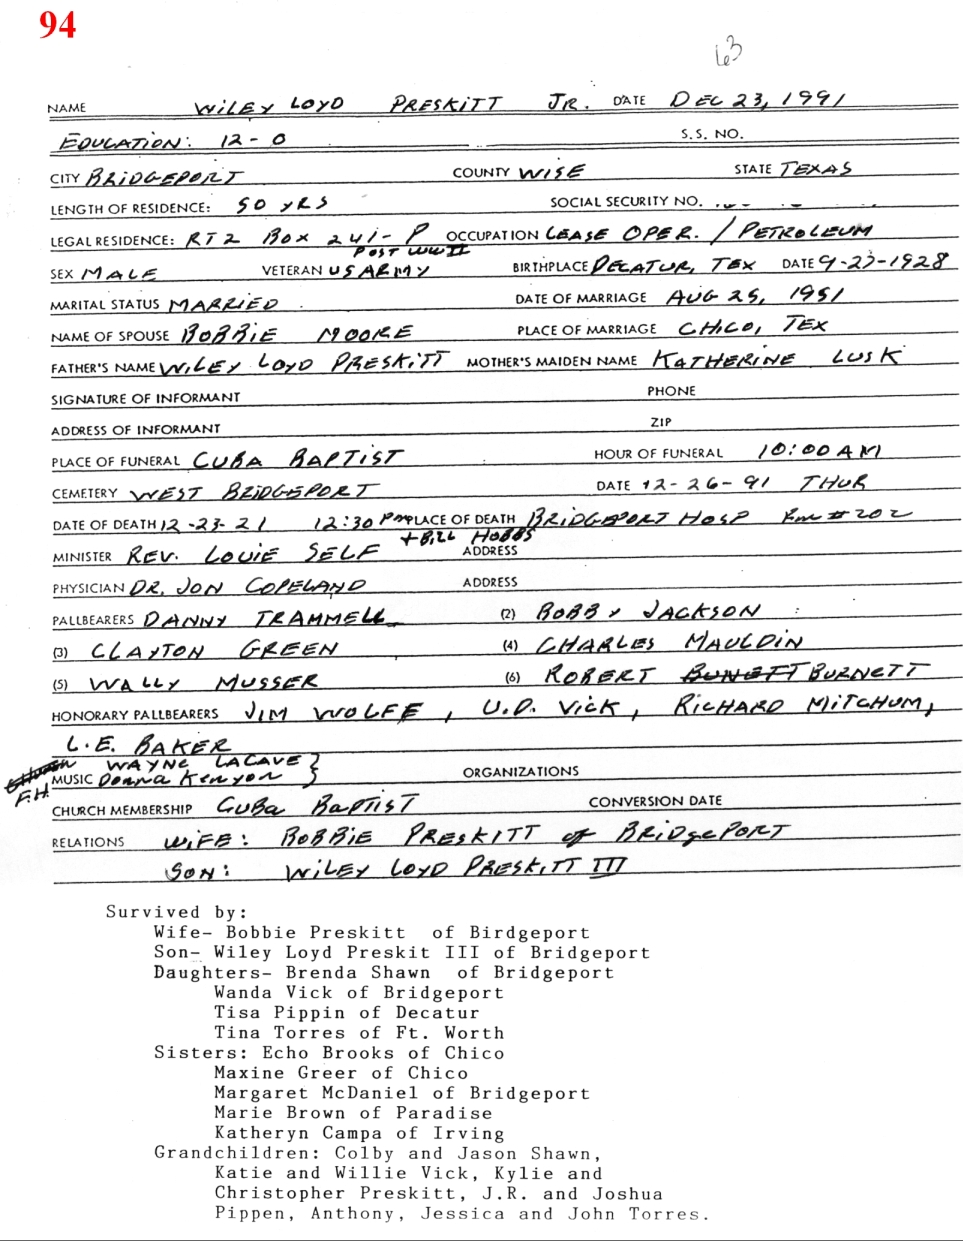 94
63
NAME WILEY LOYD PRESKITT JR. DATE DEC 23, 1991
EDUCATION: 12-0 S.S. NO.
CITY BRIDGEPORT COUNTY WISE STATE TEXAS
LENGTH OF RESIDENCE: 50 YRS SOCIAL SECURITY NO.
LEGAL RESIDENCE: RT 2 BOX 241-P OCCUPATION LEASE OPER. / PETROLEUM
POST WW II
SEX MALE VETERAN US ARMY BIRTHPLACE DECATUR, TEX DATE 9-23-1928
MARITAL STATUS MARRIED DATE OF MARRIAGE AUG 25, 1951
NAME OF SPOUSE BOBBIE MOORE PLACE OF MARRIAGE CHICO, TEX
FATHER'S NAME WILEY LOYD PRESKITT MOTHER'S MAIDEN NAME KATHERINE LUSK
SIGNATURE OF INFORMANT PHONE
ADDRESS OF INFORMANT ZIP
PLACE OF FUNERAL CUBA BAPTIST HOUR OF FUNERAL 10:00 AM
CEMETERY WEST BRIDGEPORT DATE 12-26-91 THUR
DATE OF DEATH 12-23-21 12:30 PM PLACE OF DEATH BRIDGEPORT HOSP RM # 202
+ BILL HOBBS
MINISTER REV. LOUIE SELF ADDRESS
PHYSICIAN DR. JON COPELAND ADDRESS
PALLBEARERS DANNY TRAMMELL (2) BOBBY JACKSON
(3) CLAYTON GREEN (4) CHARLES MAULDIN
(5) WALLY MUSSER (6) ROBERT BUNETT BURNETT
HONORARY PALLBEARERS JIM WOLFE, U.D. VICK, RICHARD MITCHUM,
L.E. BAKER
WAYNE LACAVE
MUSIC Donna Kenyon } ORGANIZATIONS
F.H.
CHURCH MEMBERSHIP CUBA BAPTIST CONVERSION DATE
RELATIONS WIFE: BOBBIE PRESKITT of BRIDGEPORT
SON: WILEY LOYD PRESKITT III
Survived by:
Wife- Bobbie Preskitt of Birdgeport
Son- Wiley Loyd Preskit III of Bridgeport
Daughters- Brenda Shawn of Bridgeport
Wanda Vick of Bridgeport
Tisa Pippin of Decatur
Tina Torres of Ft. Worth
Sisters: Echo Brooks of Chico
Maxine Greer of Chico
Margaret McDaniel of Bridgeport
Marie Brown of Paradise
Katheryn Campa of Irving
Grandchildren: Colby and Jason Shawn,
Katie and Willie Vick, Kylie and
Christopher Preskitt, J.R. and Joshua
Pippen, Anthony, Jessica and John Torres.